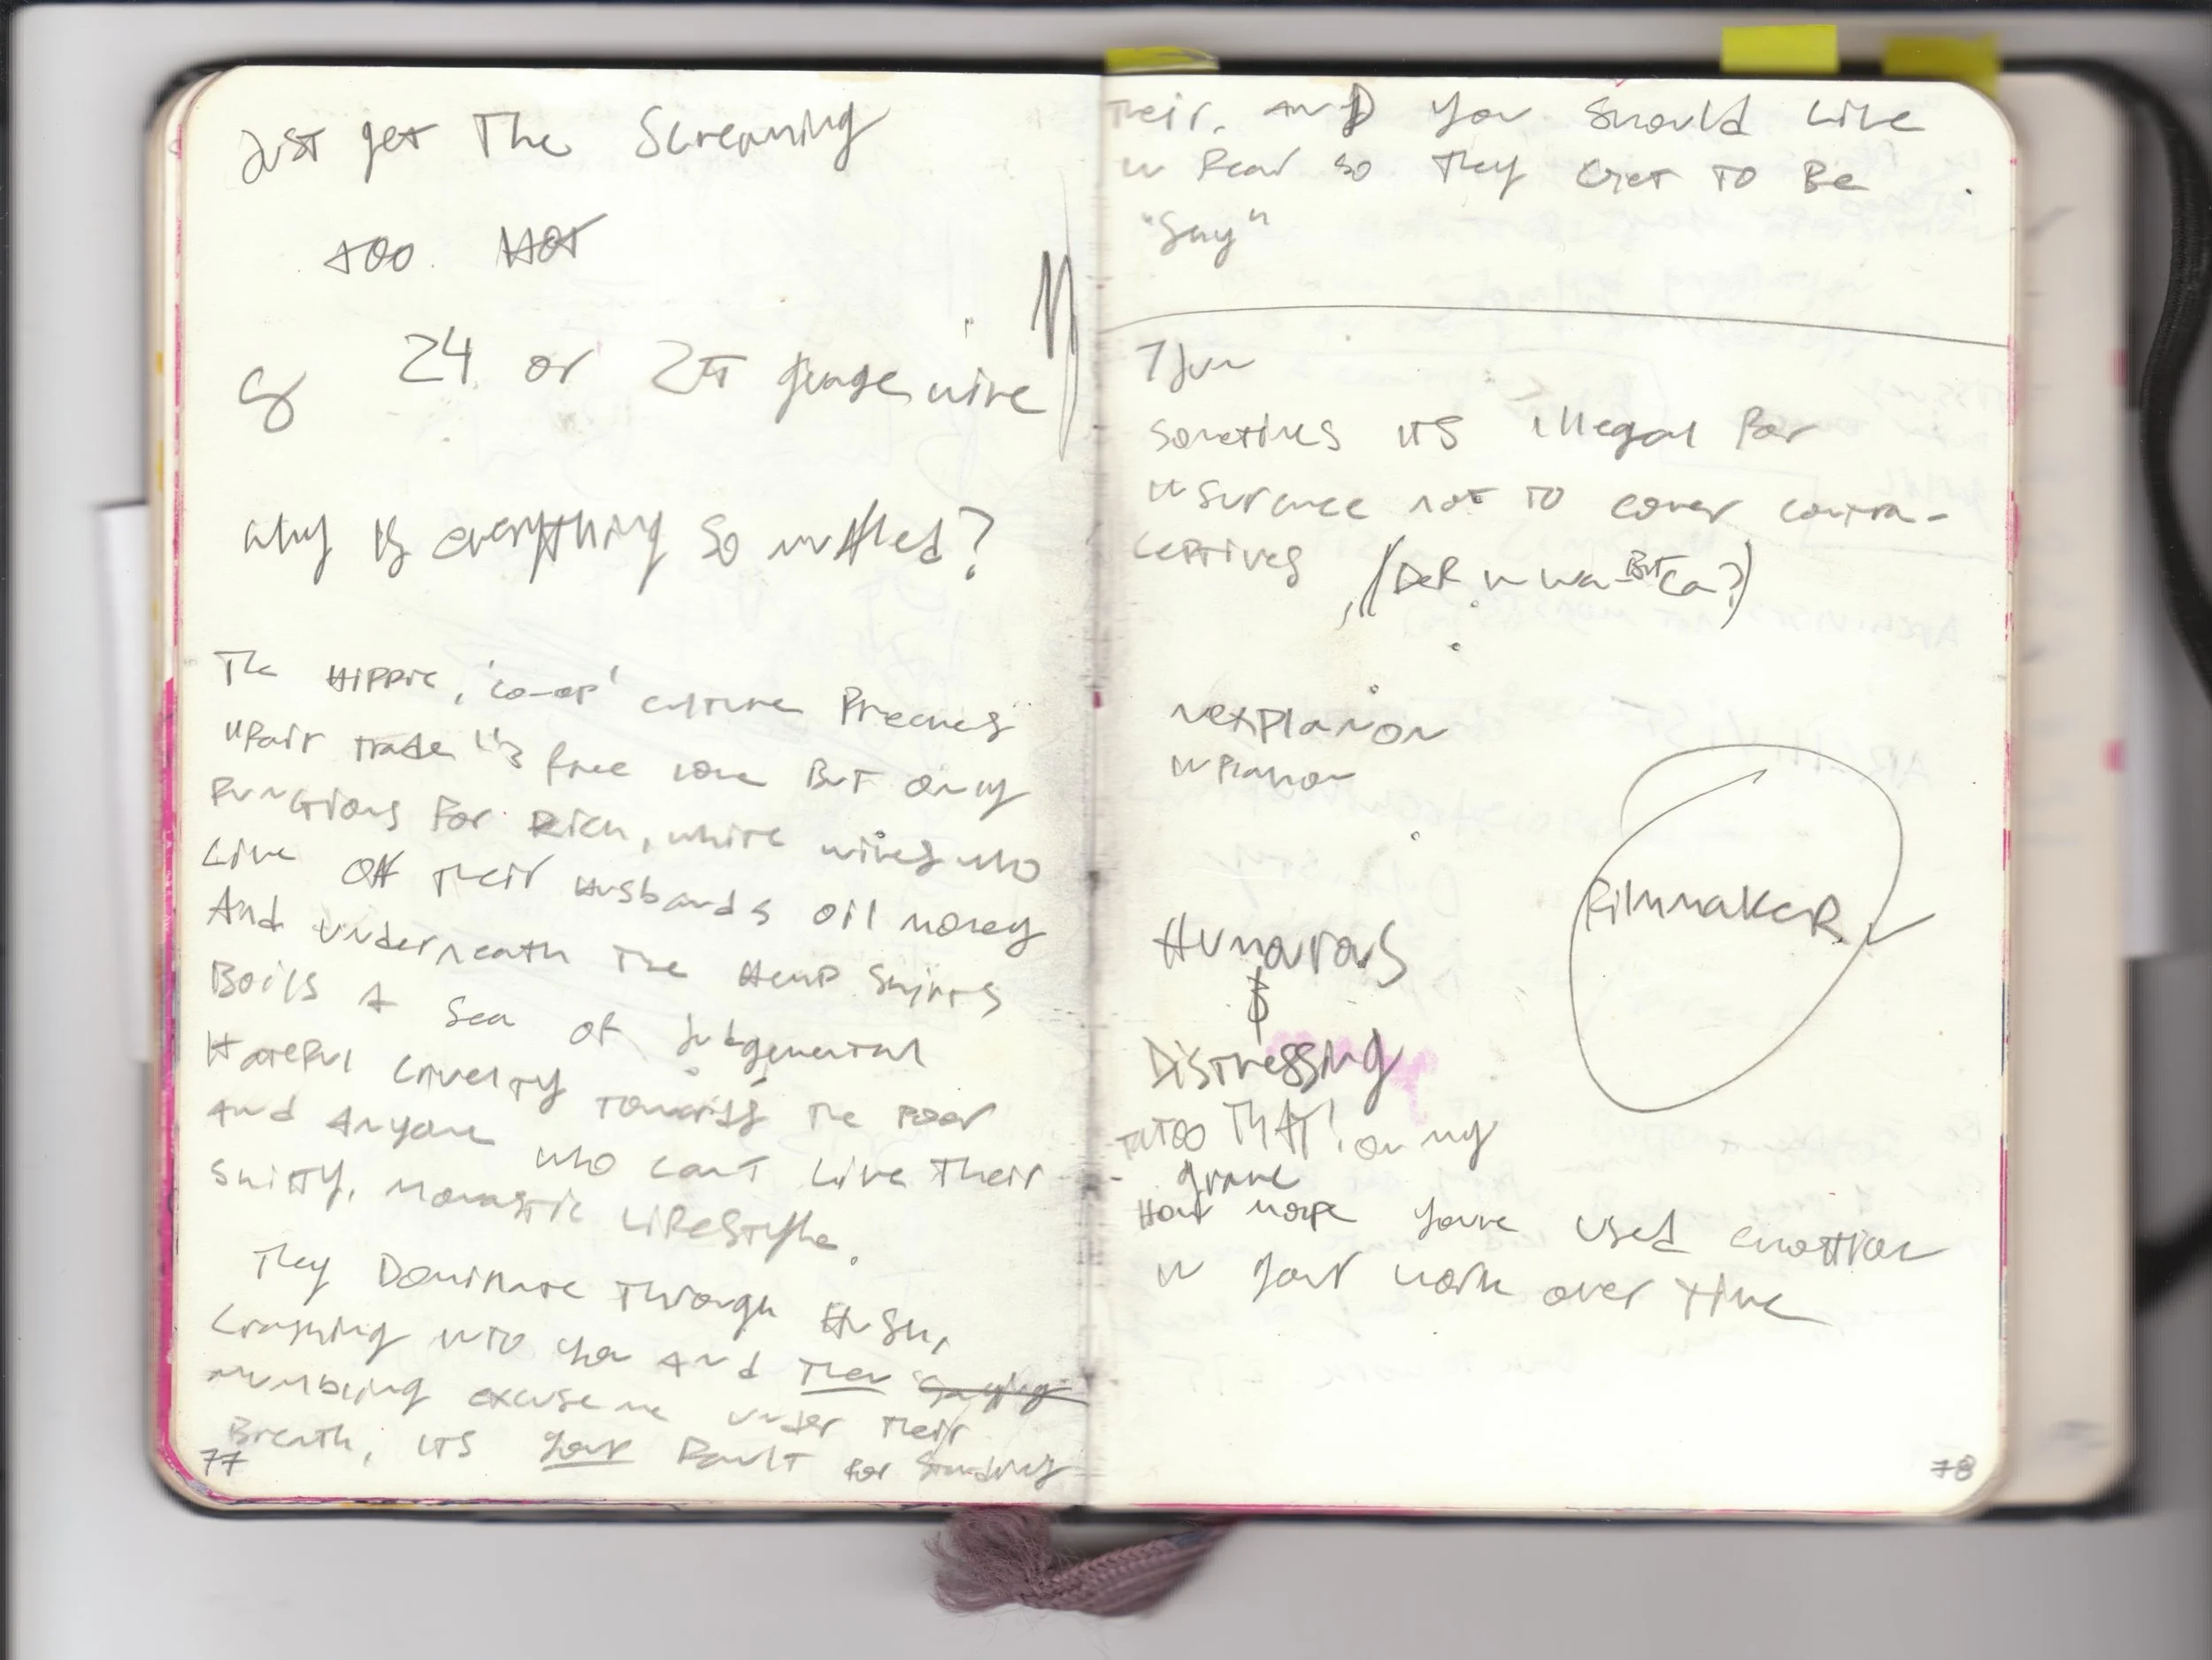 Just get The Screaming
too HOT
24 or 25 guage wire
why is everything so muffled?
The Hippie, 'co-op' culture Preaches
"Fair trade" & free love But only
Functions For Rich, white wives who
Live off their Husbands oil money
And underneath the Hemp Shirts
Boils A Sea of judgemental
Hateful cruelty towards the poor
And Anyone who can't Live Their
Shitty, Monastic Lifestyle.
They Dominate Through Hush,
Crashing into you And Then Saying
mumbling excuse me under their
Breath, its your Fault for Standing
77
Their. AND You Should Live
in Fear so They Get TO Be
"Shy"
7 Jun
Sometimes its illegal For
insurance not TO cover contra-
ceptives, (Def in Wa - But Ca?)
Nexplanon
implanon
FilmmakeR
Humorous
&
Distressing
Tatoo THAT! on my
grave
How you've used emotion
in your work over time
78